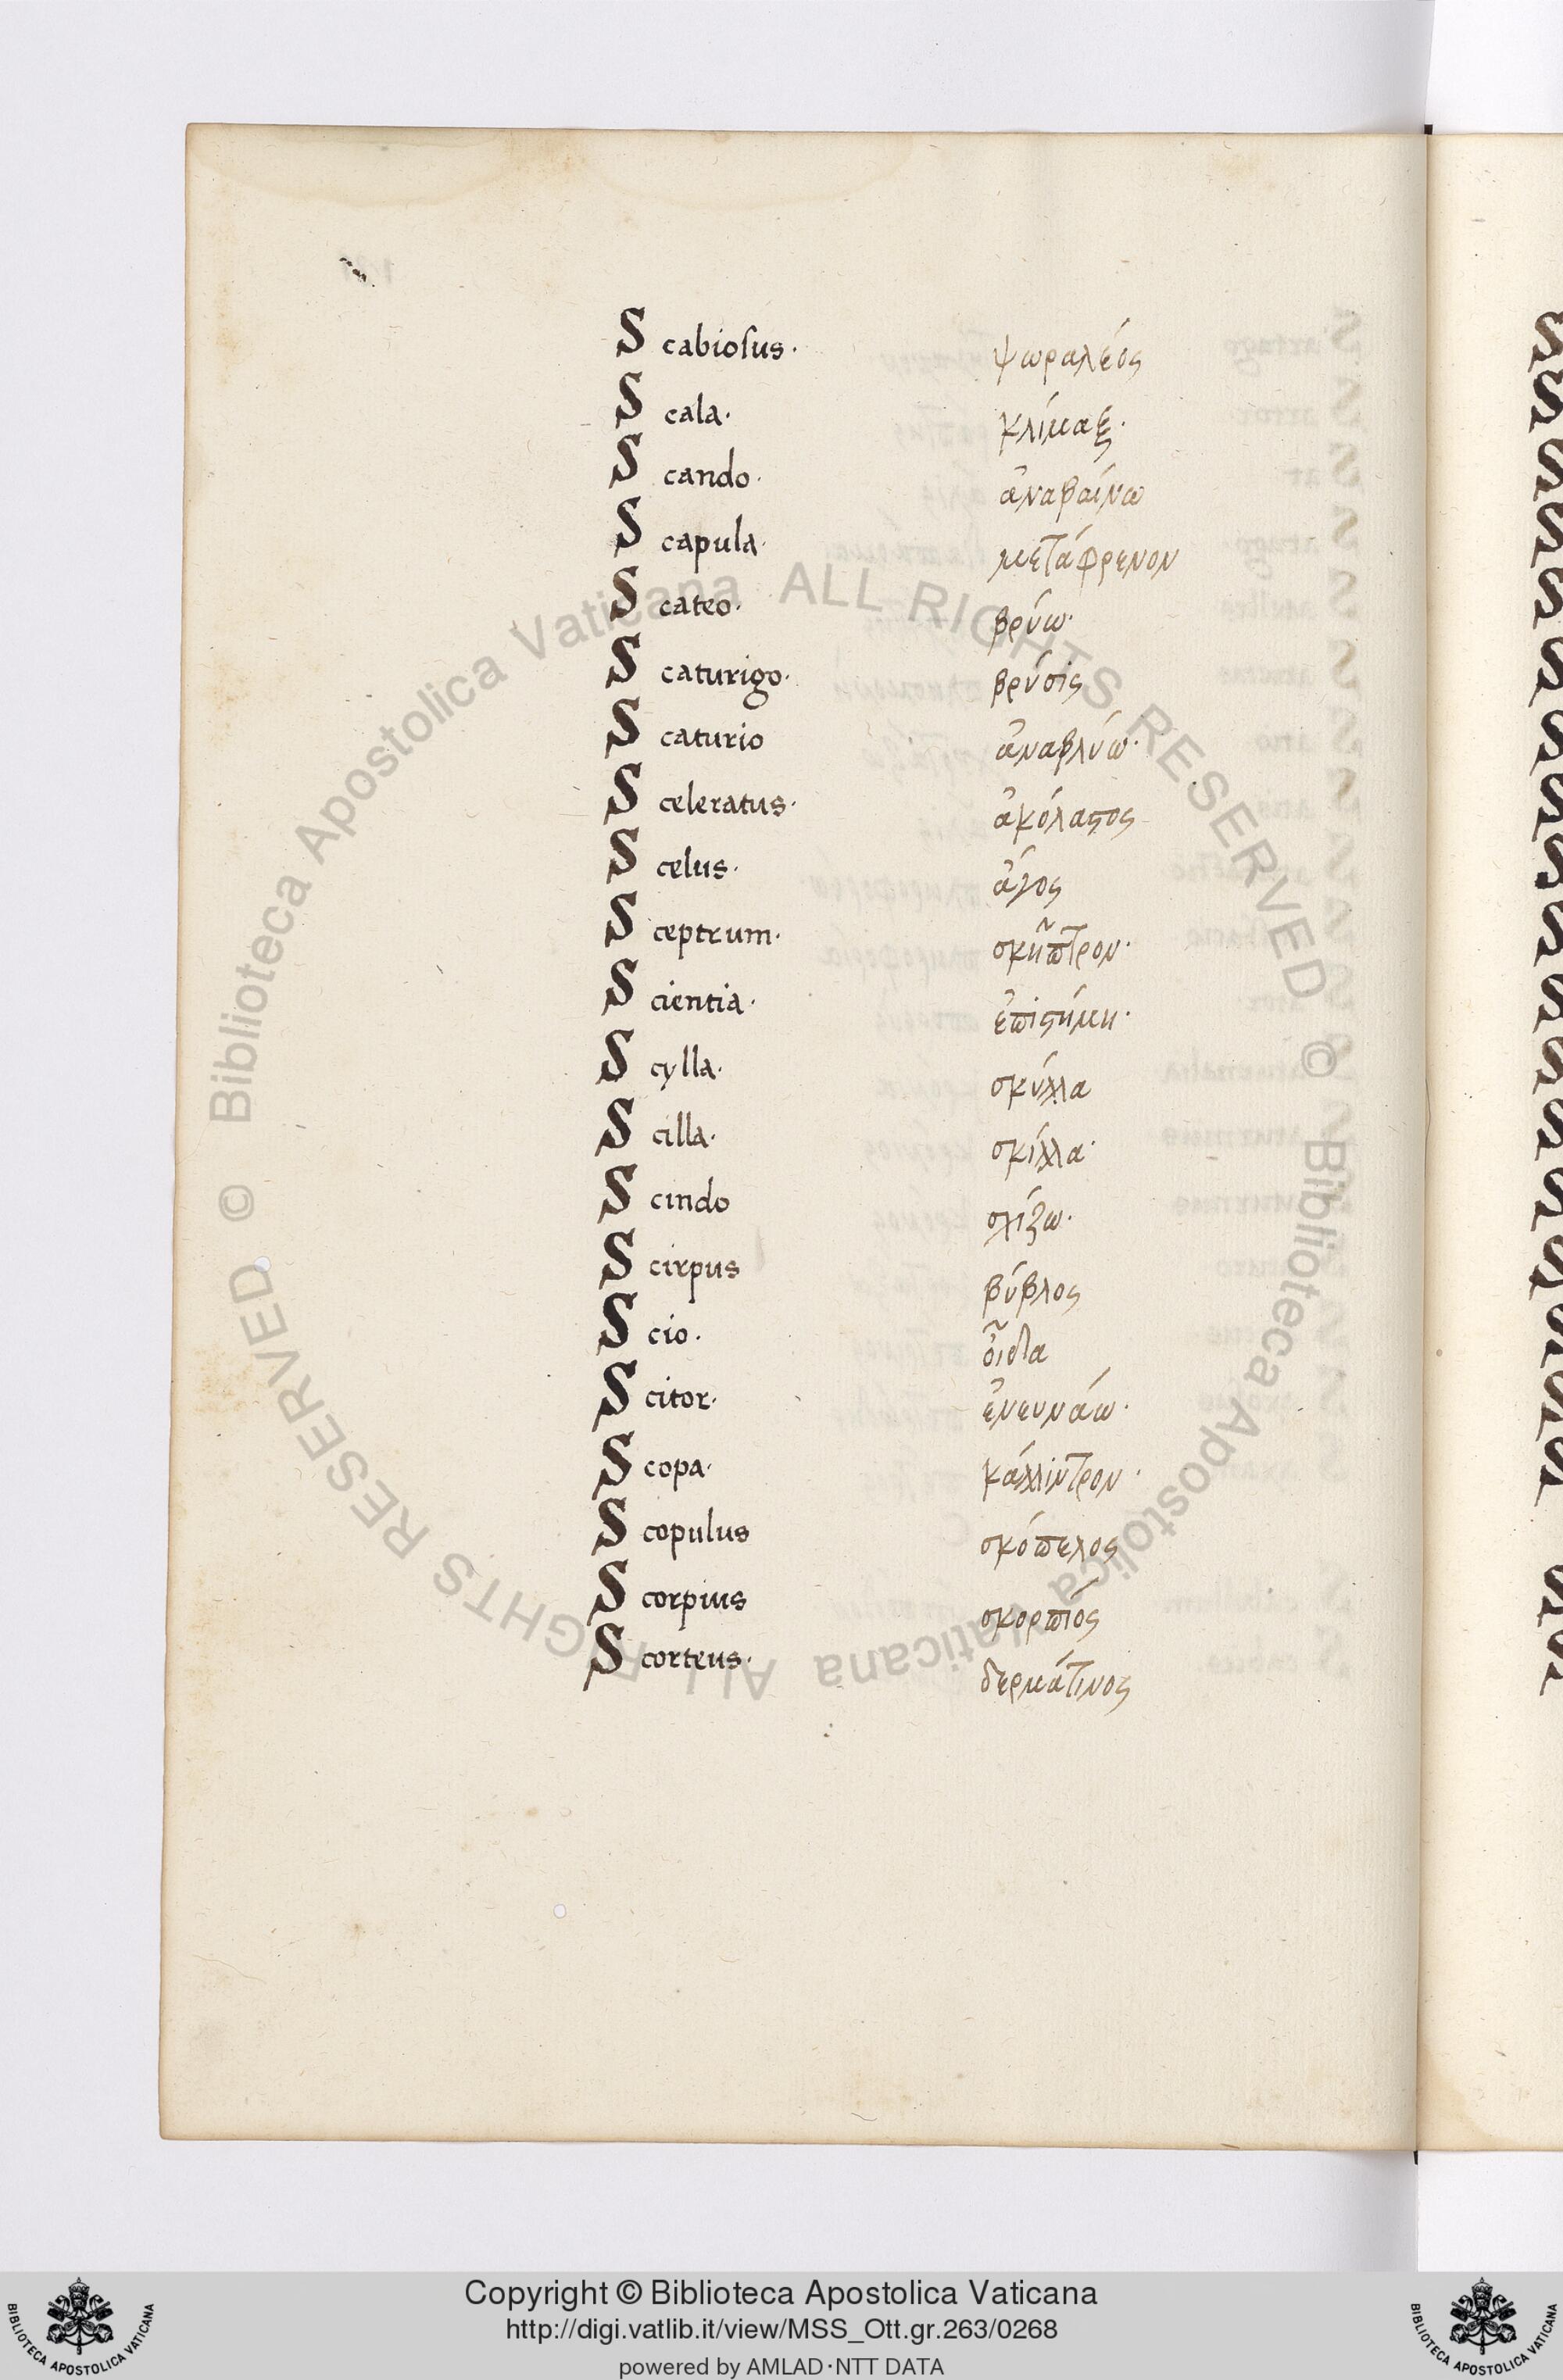 Scabiosus· ψωραλέος
Scala· κλίμαξ·
Scando· ἀναβαίνω
Scapula· μετάφρενον
Scateo· βρύω·
Scaturigo· βρύσις
Scaturio ἀναβλύω·
Sceleratus· ἀκόλαστος
Scelus· ἄγος
Sceptrum· σκῆπτρον·
Scientia· ἐπιστήμη·
Scylla· σκύλλα
Scilla· σκίλλα·
Scindo σχίζω·
Scirpus βύβλος
Scio· οἶδα
Scitor·
Scopa· κάλλιντρον·
Scopulus σκόπελος
Scorpius σκορπιός
Scorteus· δερμάτινος
© Biblioteca Apostolica Vaticana ALL RIGHTS RESERVED
© Biblioteca Apostolica Vaticana ALL RIGHTS RESERVED
Copyright © Biblioteca Apostolica Vaticana
http://digi.vatlib.it/view/MSS_Ott.gr.263/0268
powered by AMLAD·NTT DATA
BIBLIOTECA APOSTOLICA VATICANA
BIBLIOTECA APOSTOLICA VATICANA